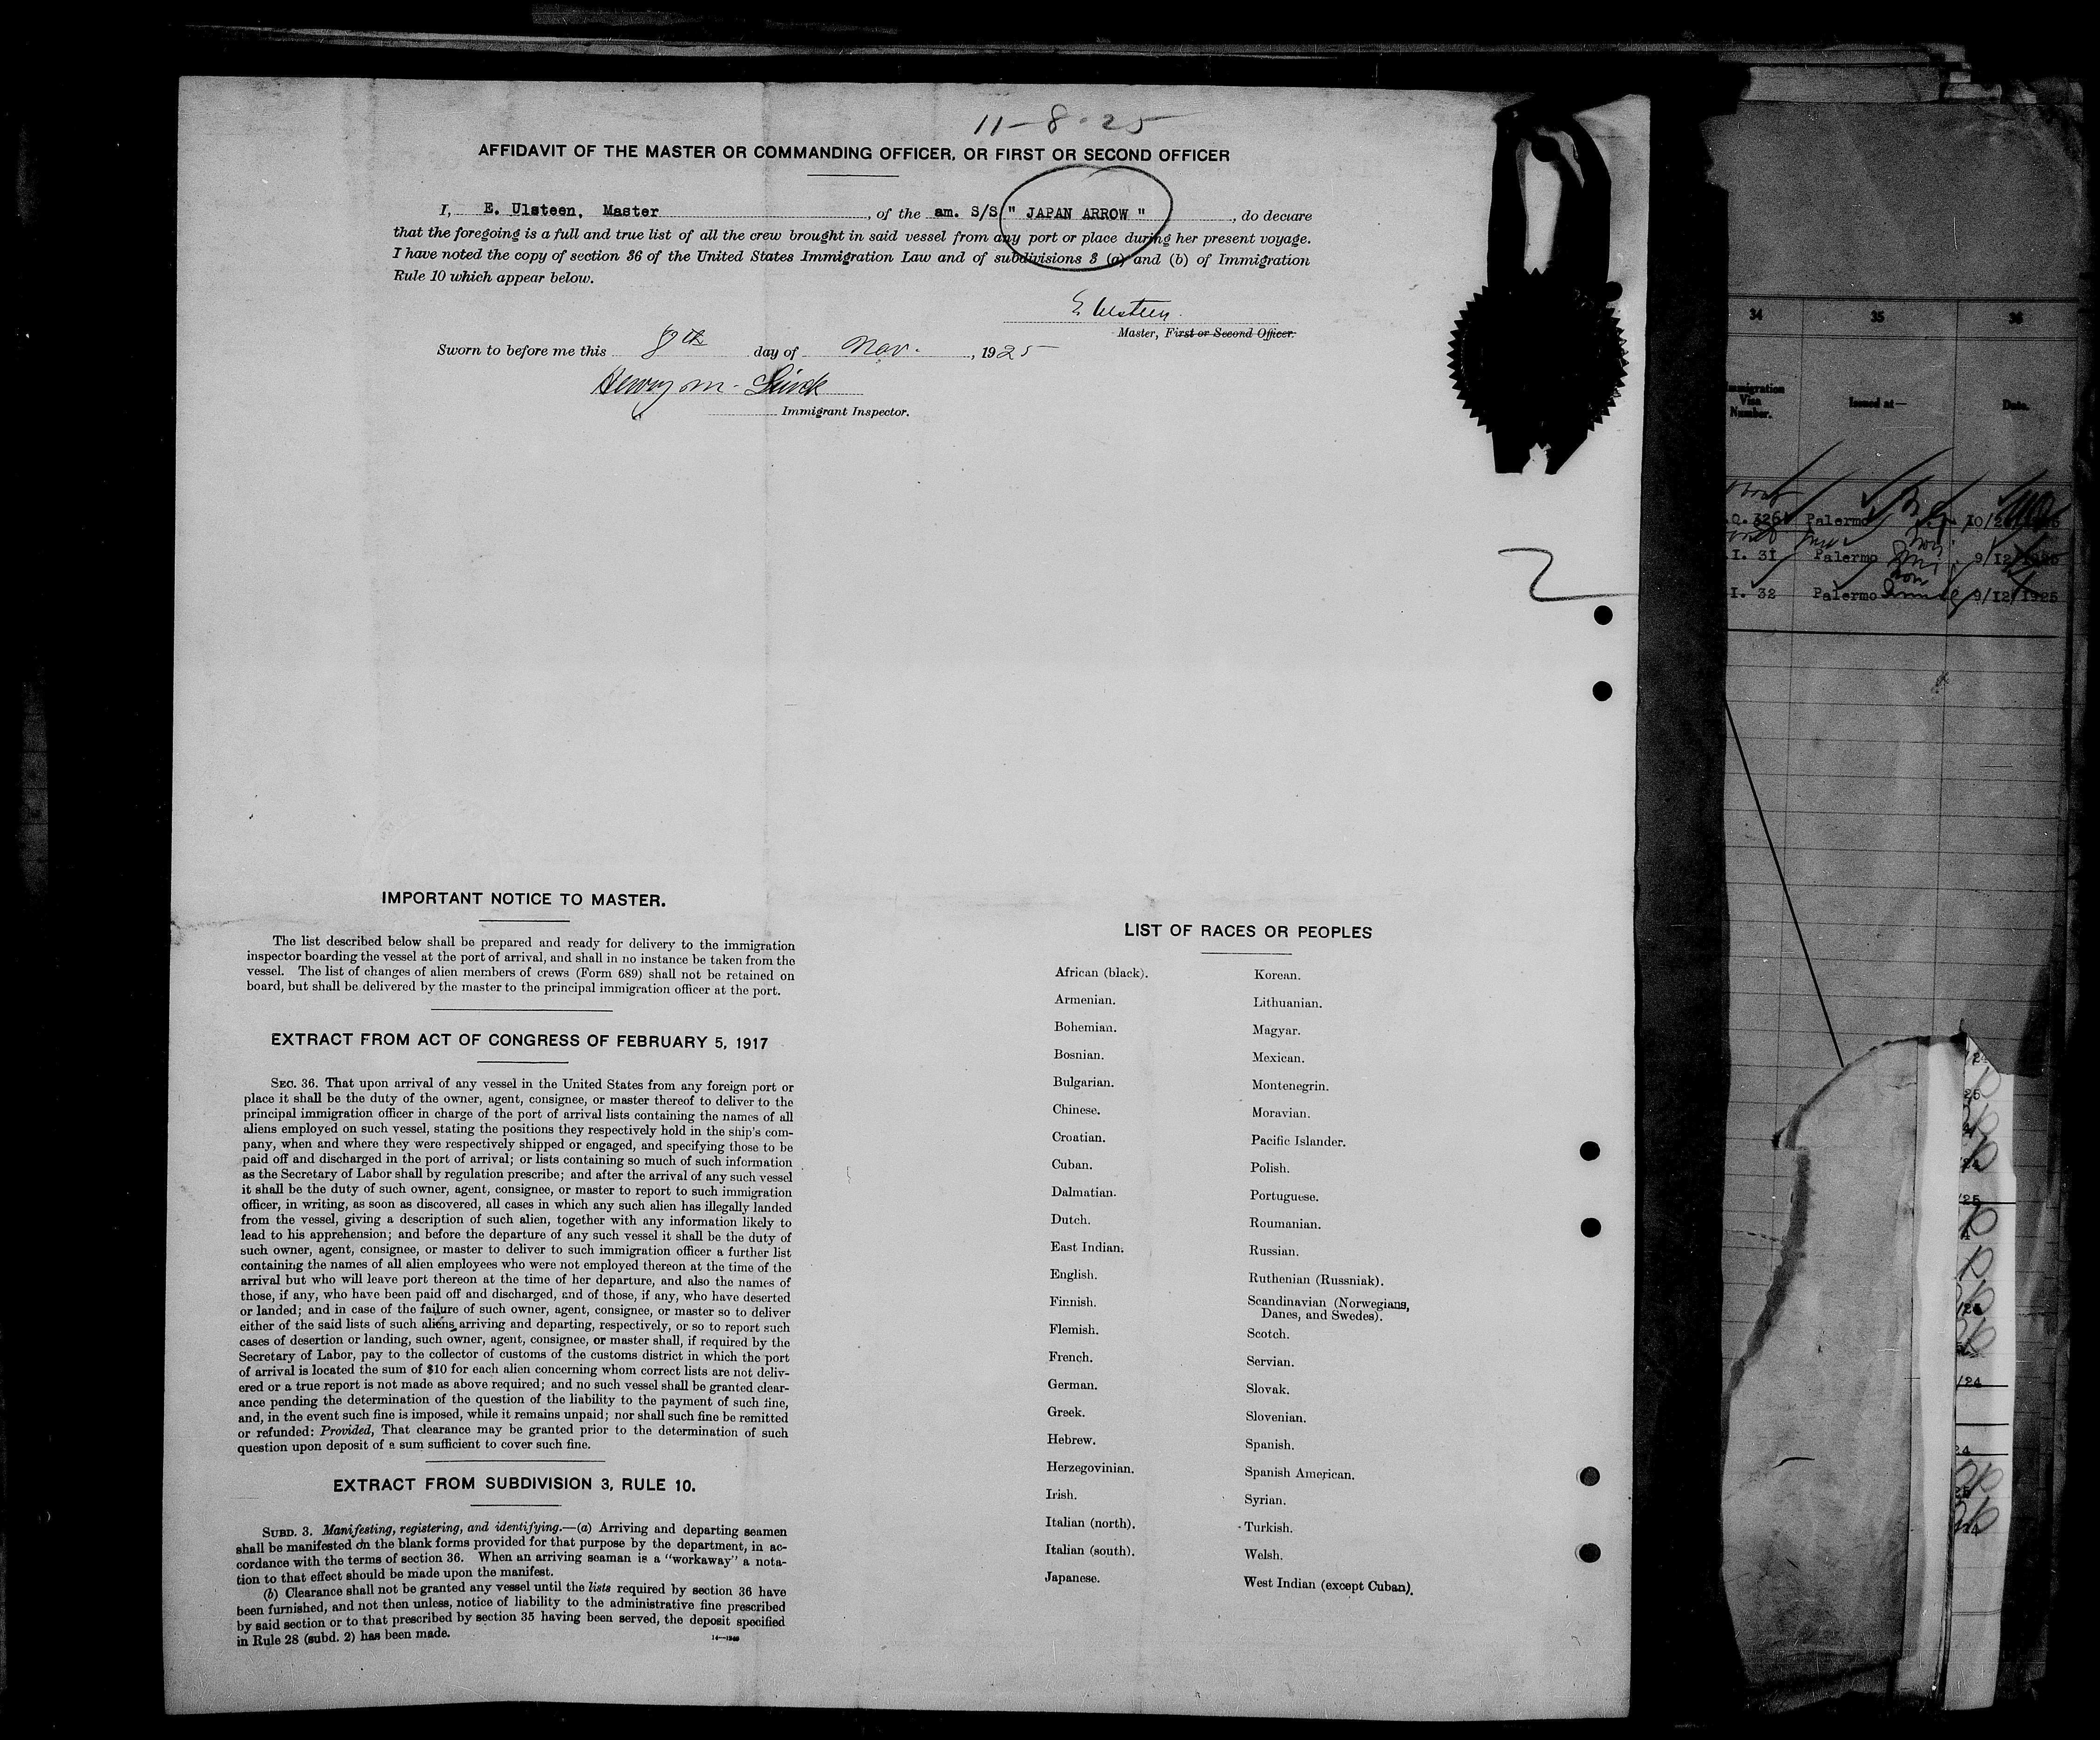 11-8-25
AFFIDAVIT OF THE MASTER OR COMMANDING OFFICER, OR FIRST OR SECOND OFFICER
I, E. Ulsteen, Master, of the am. S/S " JAPAN ARROW ", do declare
that the foregoing is a full and true list of all the crew brought in said vessel from any port or place during her present voyage.
I have noted the copy of section 36 of the United States Immigration Law and of subdivisions 3 (a) and (b) of Immigration
Rule 10 which appear below.
E Ulsteen.
Master, First or Second Officer.
Sworn to before me this 8th day of Nov., 1925
Henry M.
Immigrant Inspector.
2
IMPORTANT NOTICE TO MASTER.
The list described below shall be prepared and ready for delivery to the immigration
inspector boarding the vessel at the port of arrival, and shall in no instance be taken from the
vessel. The list of changes of alien members of crews (Form 689) shall not be retained on
board, but shall be delivered by the master to the principal immigration officer at the port.
EXTRACT FROM ACT OF CONGRESS OF FEBRUARY 5, 1917
SEC. 36. That upon arrival of any vessel in the United States from any foreign port or
place it shall be the duty of the owner, agent, consignee, or master thereof to deliver to the
principal immigration officer in charge of the port of arrival lists containing the names of all
aliens employed on such vessel, stating the positions they respectively hold in the ship's com-
pany, when and where they were respectively shipped or engaged, and specifying those to be
paid off and discharged in the port of arrival; or lists containing so much of such information
as the Secretary of Labor shall by regulation prescribe; and after the arrival of any such vessel
it shall be the duty of such owner, agent, consignee, or master to report to such immigration
officer, in writing, as soon as discovered, all cases in which any such alien has illegally landed
from the vessel, giving a description of such alien, together with any information likely to
lead to his apprehension; and before the departure of any such vessel it shall be the duty of
such owner, agent, consignee, or master to deliver to such immigration officer a further list
containing the names of all alien employees who were not employed thereon at the time of the
arrival but who will leave port thereon at the time of her departure, and also the names of
those, if any, who have been paid off and discharged, and of those, if any, who have deserted
or landed; and in case of the failure of such owner, agent, consignee, or master so to deliver
either of the said lists of such aliens arriving and departing, respectively, or so to report such
cases of desertion or landing, such owner, agent, consignee, or master shall, if required by the
Secretary of Labor, pay to the collector of customs of the customs district in which the port
of arrival is located the sum of $10 for each alien concerning whom correct lists are not deliv-
ered or a true report is not made as above required; and no such vessel shall be granted clear-
ance pending the determination of the question of the liability to the payment of such fine,
and, in the event such fine is imposed, while it remains unpaid; nor shall such fine be remitted
or refunded: Provided, That clearance may be granted prior to the determination of such
question upon deposit of a sum sufficient to cover such fine.
EXTRACT FROM SUBDIVISION 3, RULE 10.
SUBD. 3. Manifesting, registering, and identifying.—(a) Arriving and departing seamen
shall be manifested on the blank forms provided for that purpose by the department, in ac-
cordance with the terms of section 36. When an arriving seaman is a "workaway" a nota-
tion to that effect should be made upon the manifest.
(b) Clearance shall not be granted any vessel until the lists required by section 36 have
been furnished, and not then unless, notice of liability to the administrative fine prescribed
by said section or to that prescribed by section 35 having been served, the deposit specified
in Rule 28 (subd. 2) has been made.
LIST OF RACES OR PEOPLES
African (black). Korean.
Armenian. Lithuanian.
Bohemian. Magyar.
Bosnian. Mexican.
Bulgarian. Montenegrin.
Chinese. Moravian.
Croatian. Pacific Islander.
Cuban. Polish.
Dalmatian. Portuguese.
Dutch. Roumanian.
East Indian. Russian.
English. Ruthenian (Russniak).
Finnish. Scandinavian (Norwegians,
Danes, and Swedes).
Flemish. Scotch.
French. Servian.
German. Slovak.
Greek. Slovenian.
Hebrew. Spanish.
Herzegovinian. Spanish American.
Irish. Syrian.
Italian (north). Turkish.
Italian (south). Welsh.
Japanese. West Indian (except Cuban).
34 35 36
Immigration
Visa
Number.
Issued at—
Date.
Palermo
I. 31 Palermo 9/12/1925
I. 32 Palermo 9/12/1925